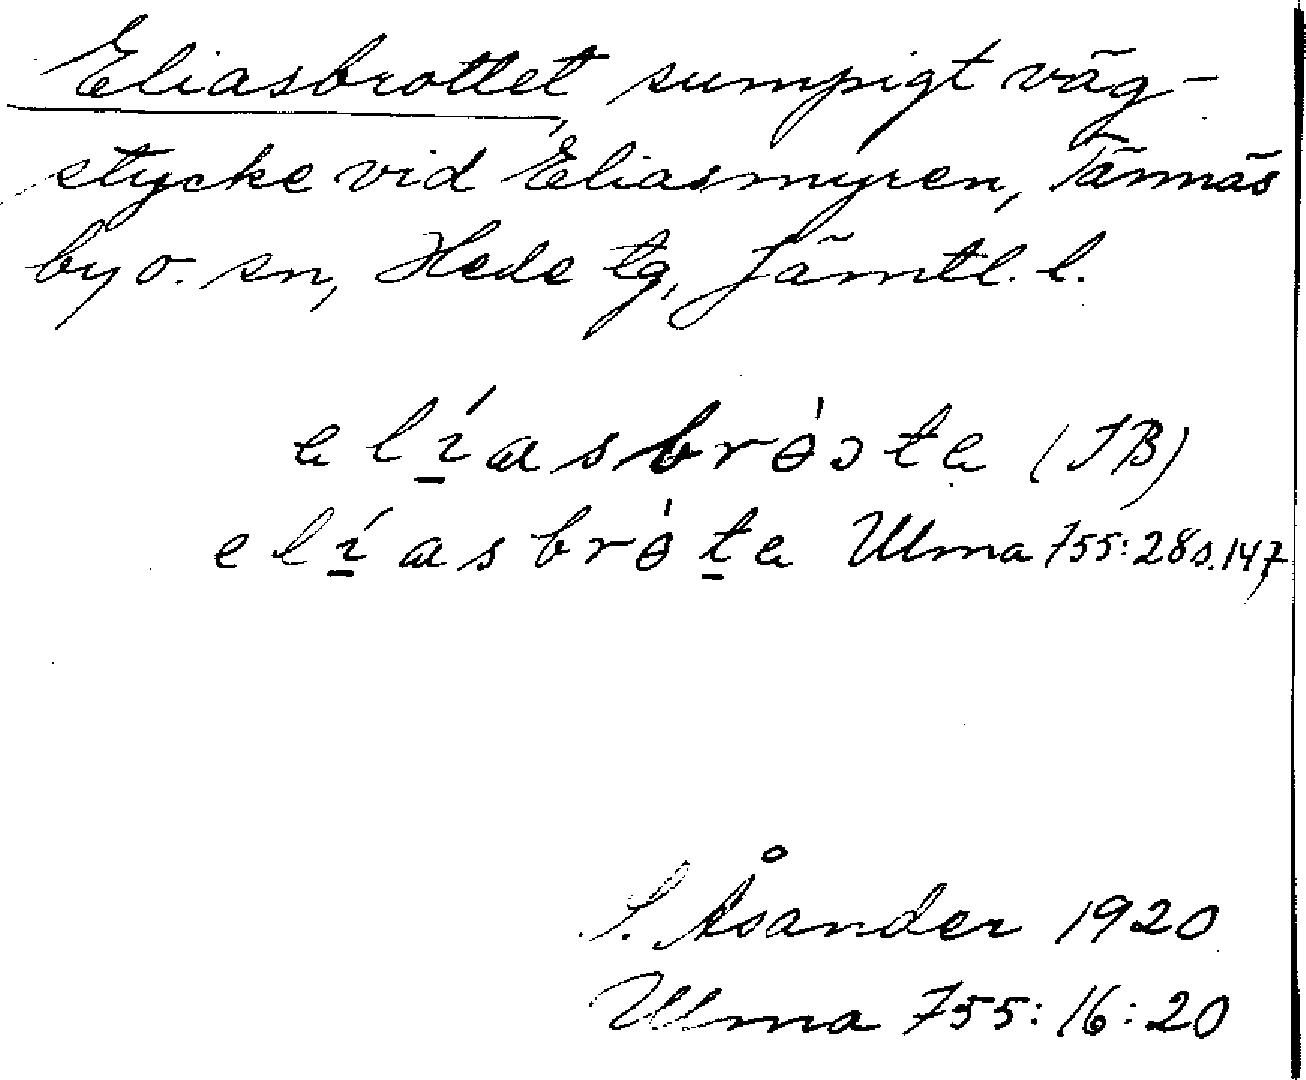 Eliasbrottet, sumpigt väg-
stycke vid Eliasmyren, Tännäs
by o. sn, Hede tg, Jämtl. l.
elíasbrɵ̀ɔta (JB)
elíasbrɵ̀ta Ulma 755:28 s. 147
S. Åsander 1920
Ulma 755:16:20